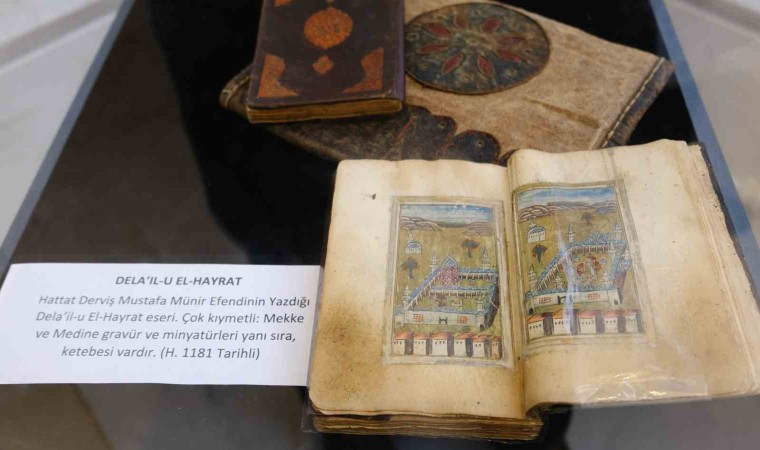 DELA’İL-U EL-HAYRAT
Hattat Derviş Mustafa Münir Efendinin Yazdığı
Dela’il-u El-Hayrat eseri. Çok kıymetli: Mekke
ve Medine gravür ve minyatürleri yanı sıra,
ketebesi vardır. (H. 1181 Tarihli)